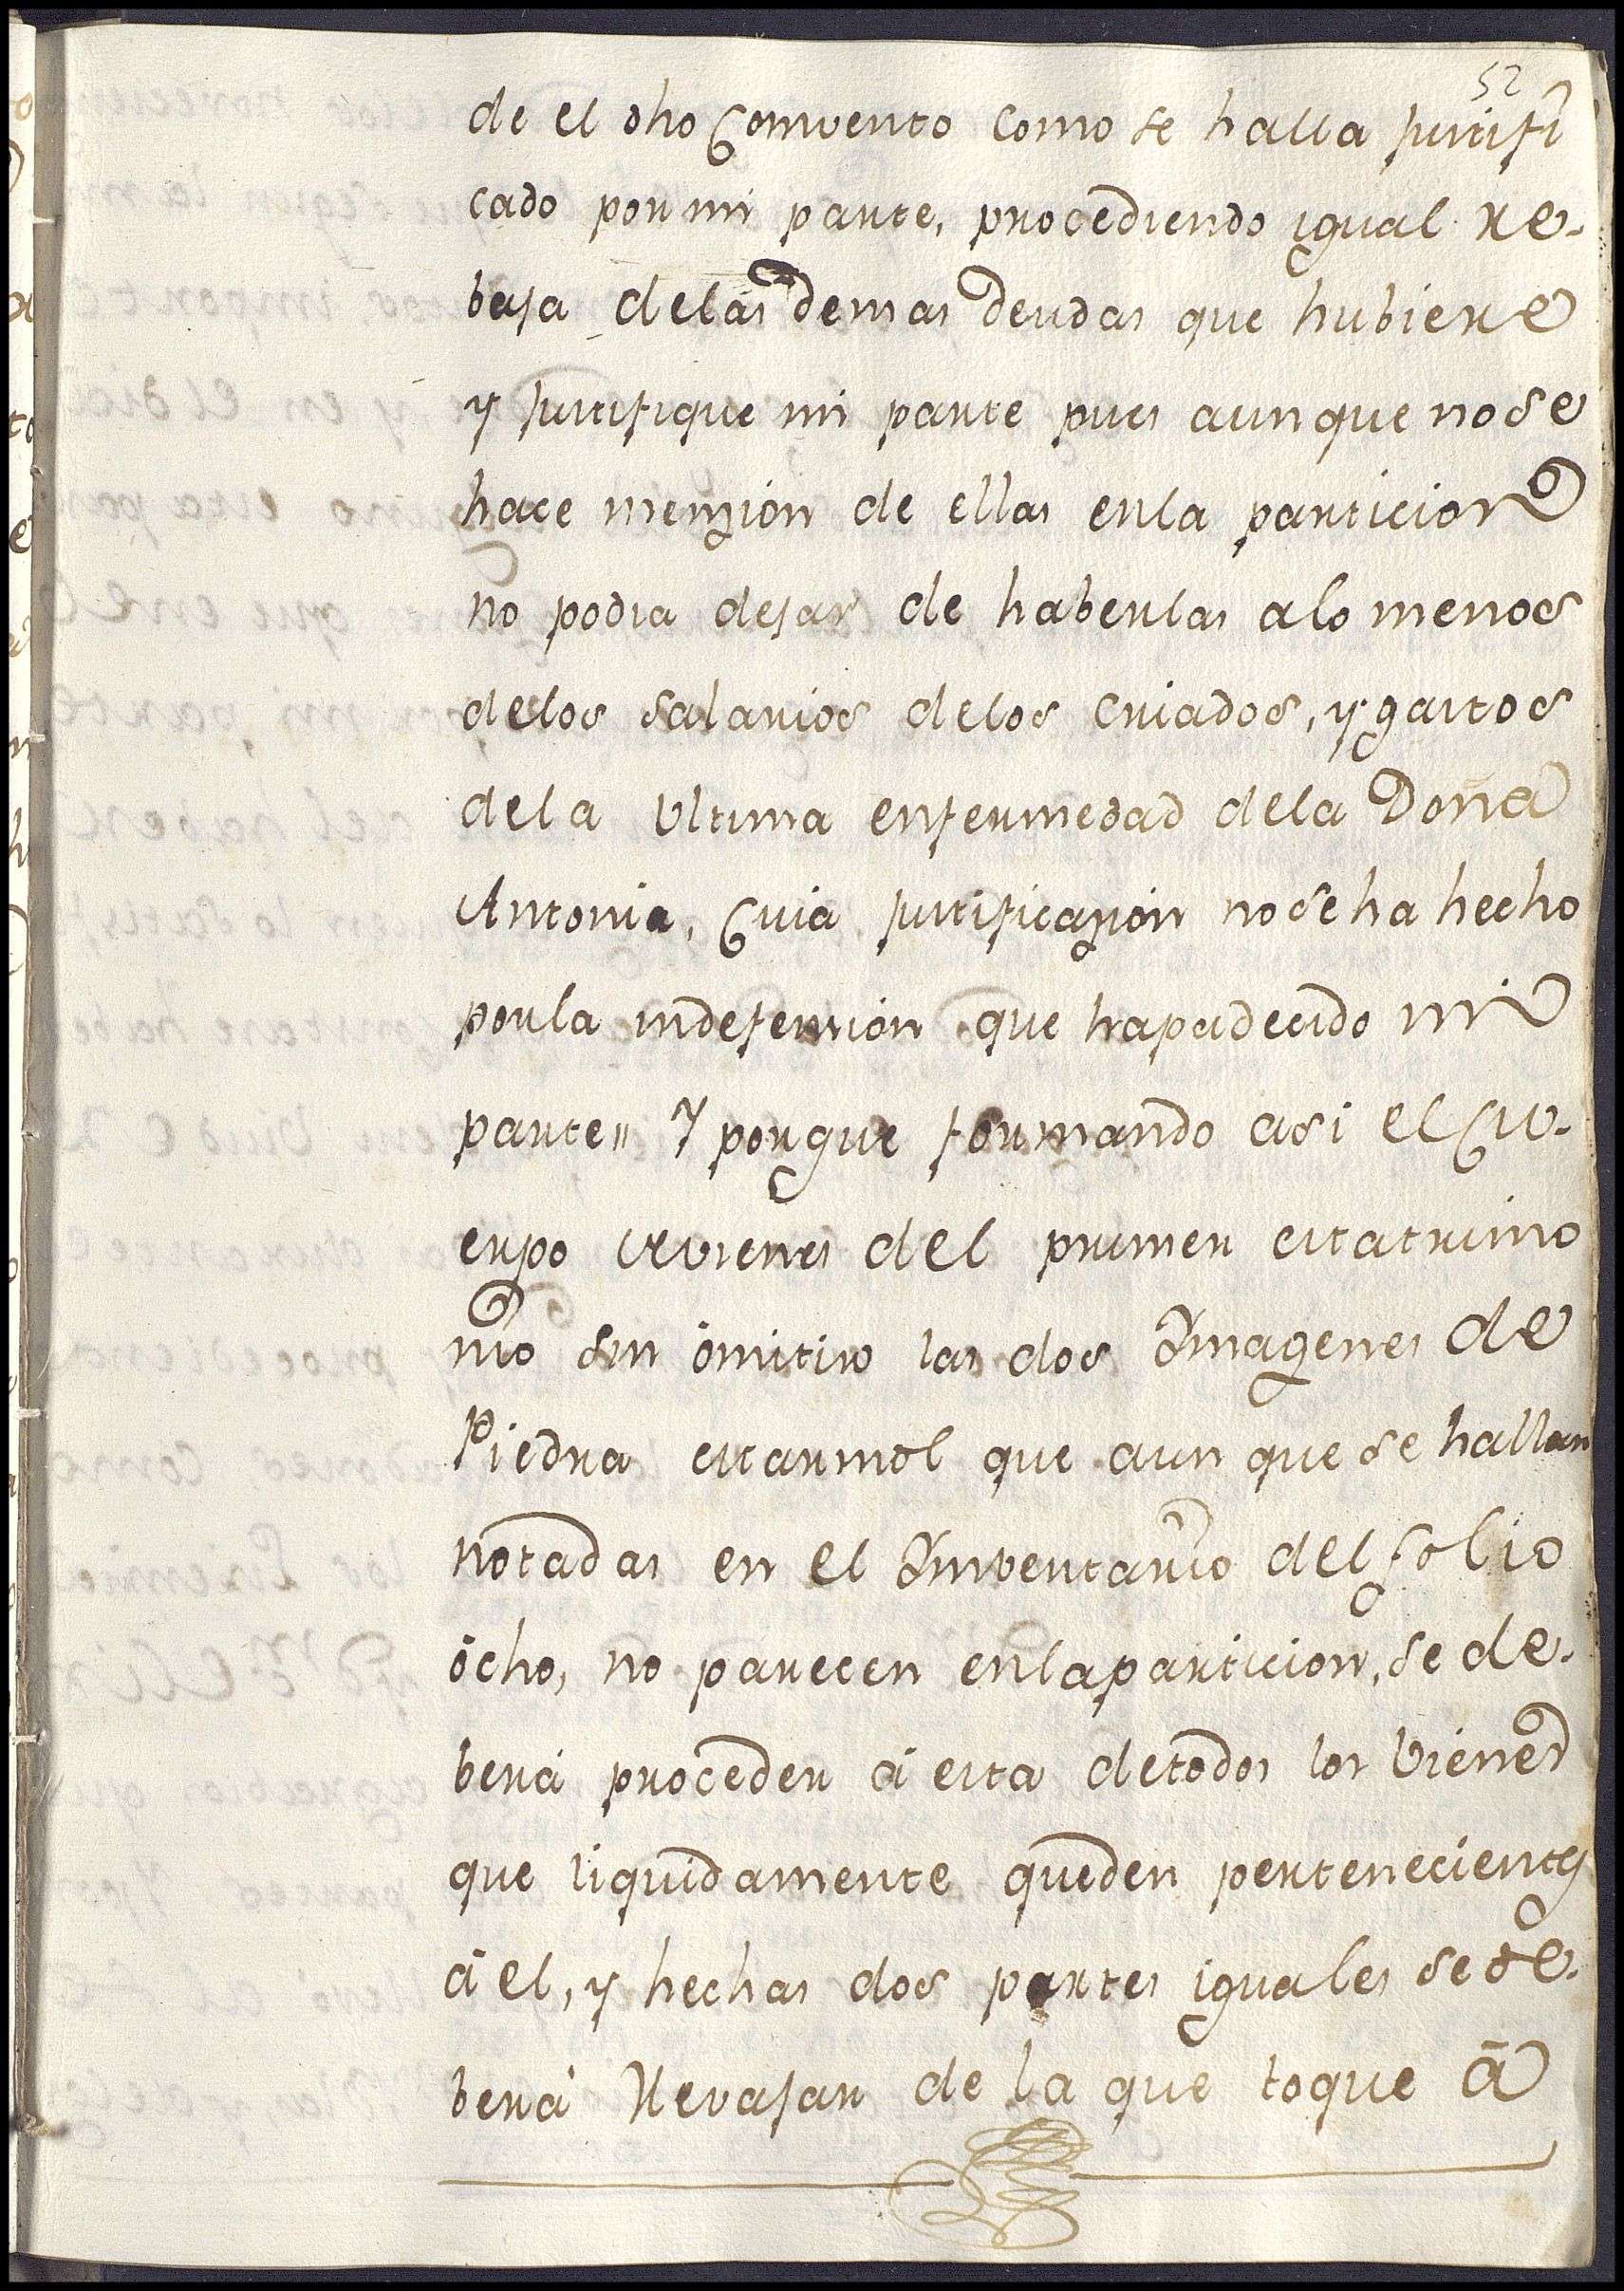 52
de el dho Combento como se halla justifi
cado por mi parte, procediendo igual re-
baja de las demas deudas que hubiere
y justifique mi parte pues aunque no se
hace menzion de ellas en la particion
no podia dejar de haberlas alo menos
delos salarios delos criados, y gastos
dela Ultima enfermedad dela Doña
Antonia, Cuia justificazion no se ha hecho
por la indefension que ha padecido mi
parte,, Y porque formando asi el Cu-
erpo de vienes del primer matrimo
nio sin omitir las dos Ymagenes de
Piedra marmol que aun que se hallan
notadas en el Ymbentario del folio
ócho, no parecen en la particion, se de-
berá proceder á esta de todos los vienes
que liquidamente queden pertenecientes
á el, y hechas dos partes iguales se de-
berá Revajar de la que toque á